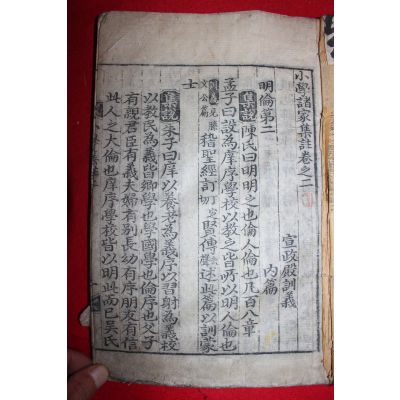 小學諸家集註卷之二
宣政殿訓義
內篇
明倫第二
集說 陳氏曰明明之也倫人倫也凡百八章
孟子曰設爲庠序學校以教之皆所以明人倫也
孟子滕文公篇 稽聖經訂賢傳述此篇以訓蒙
士
集說 朱子曰庠以養老爲義序以習射爲義校
以教民爲義皆鄉學也學國學也倫序也父子
有親君臣有義夫婦有別長幼有序朋友有信
此人之大倫也庠序學校皆以明此而已吳氏